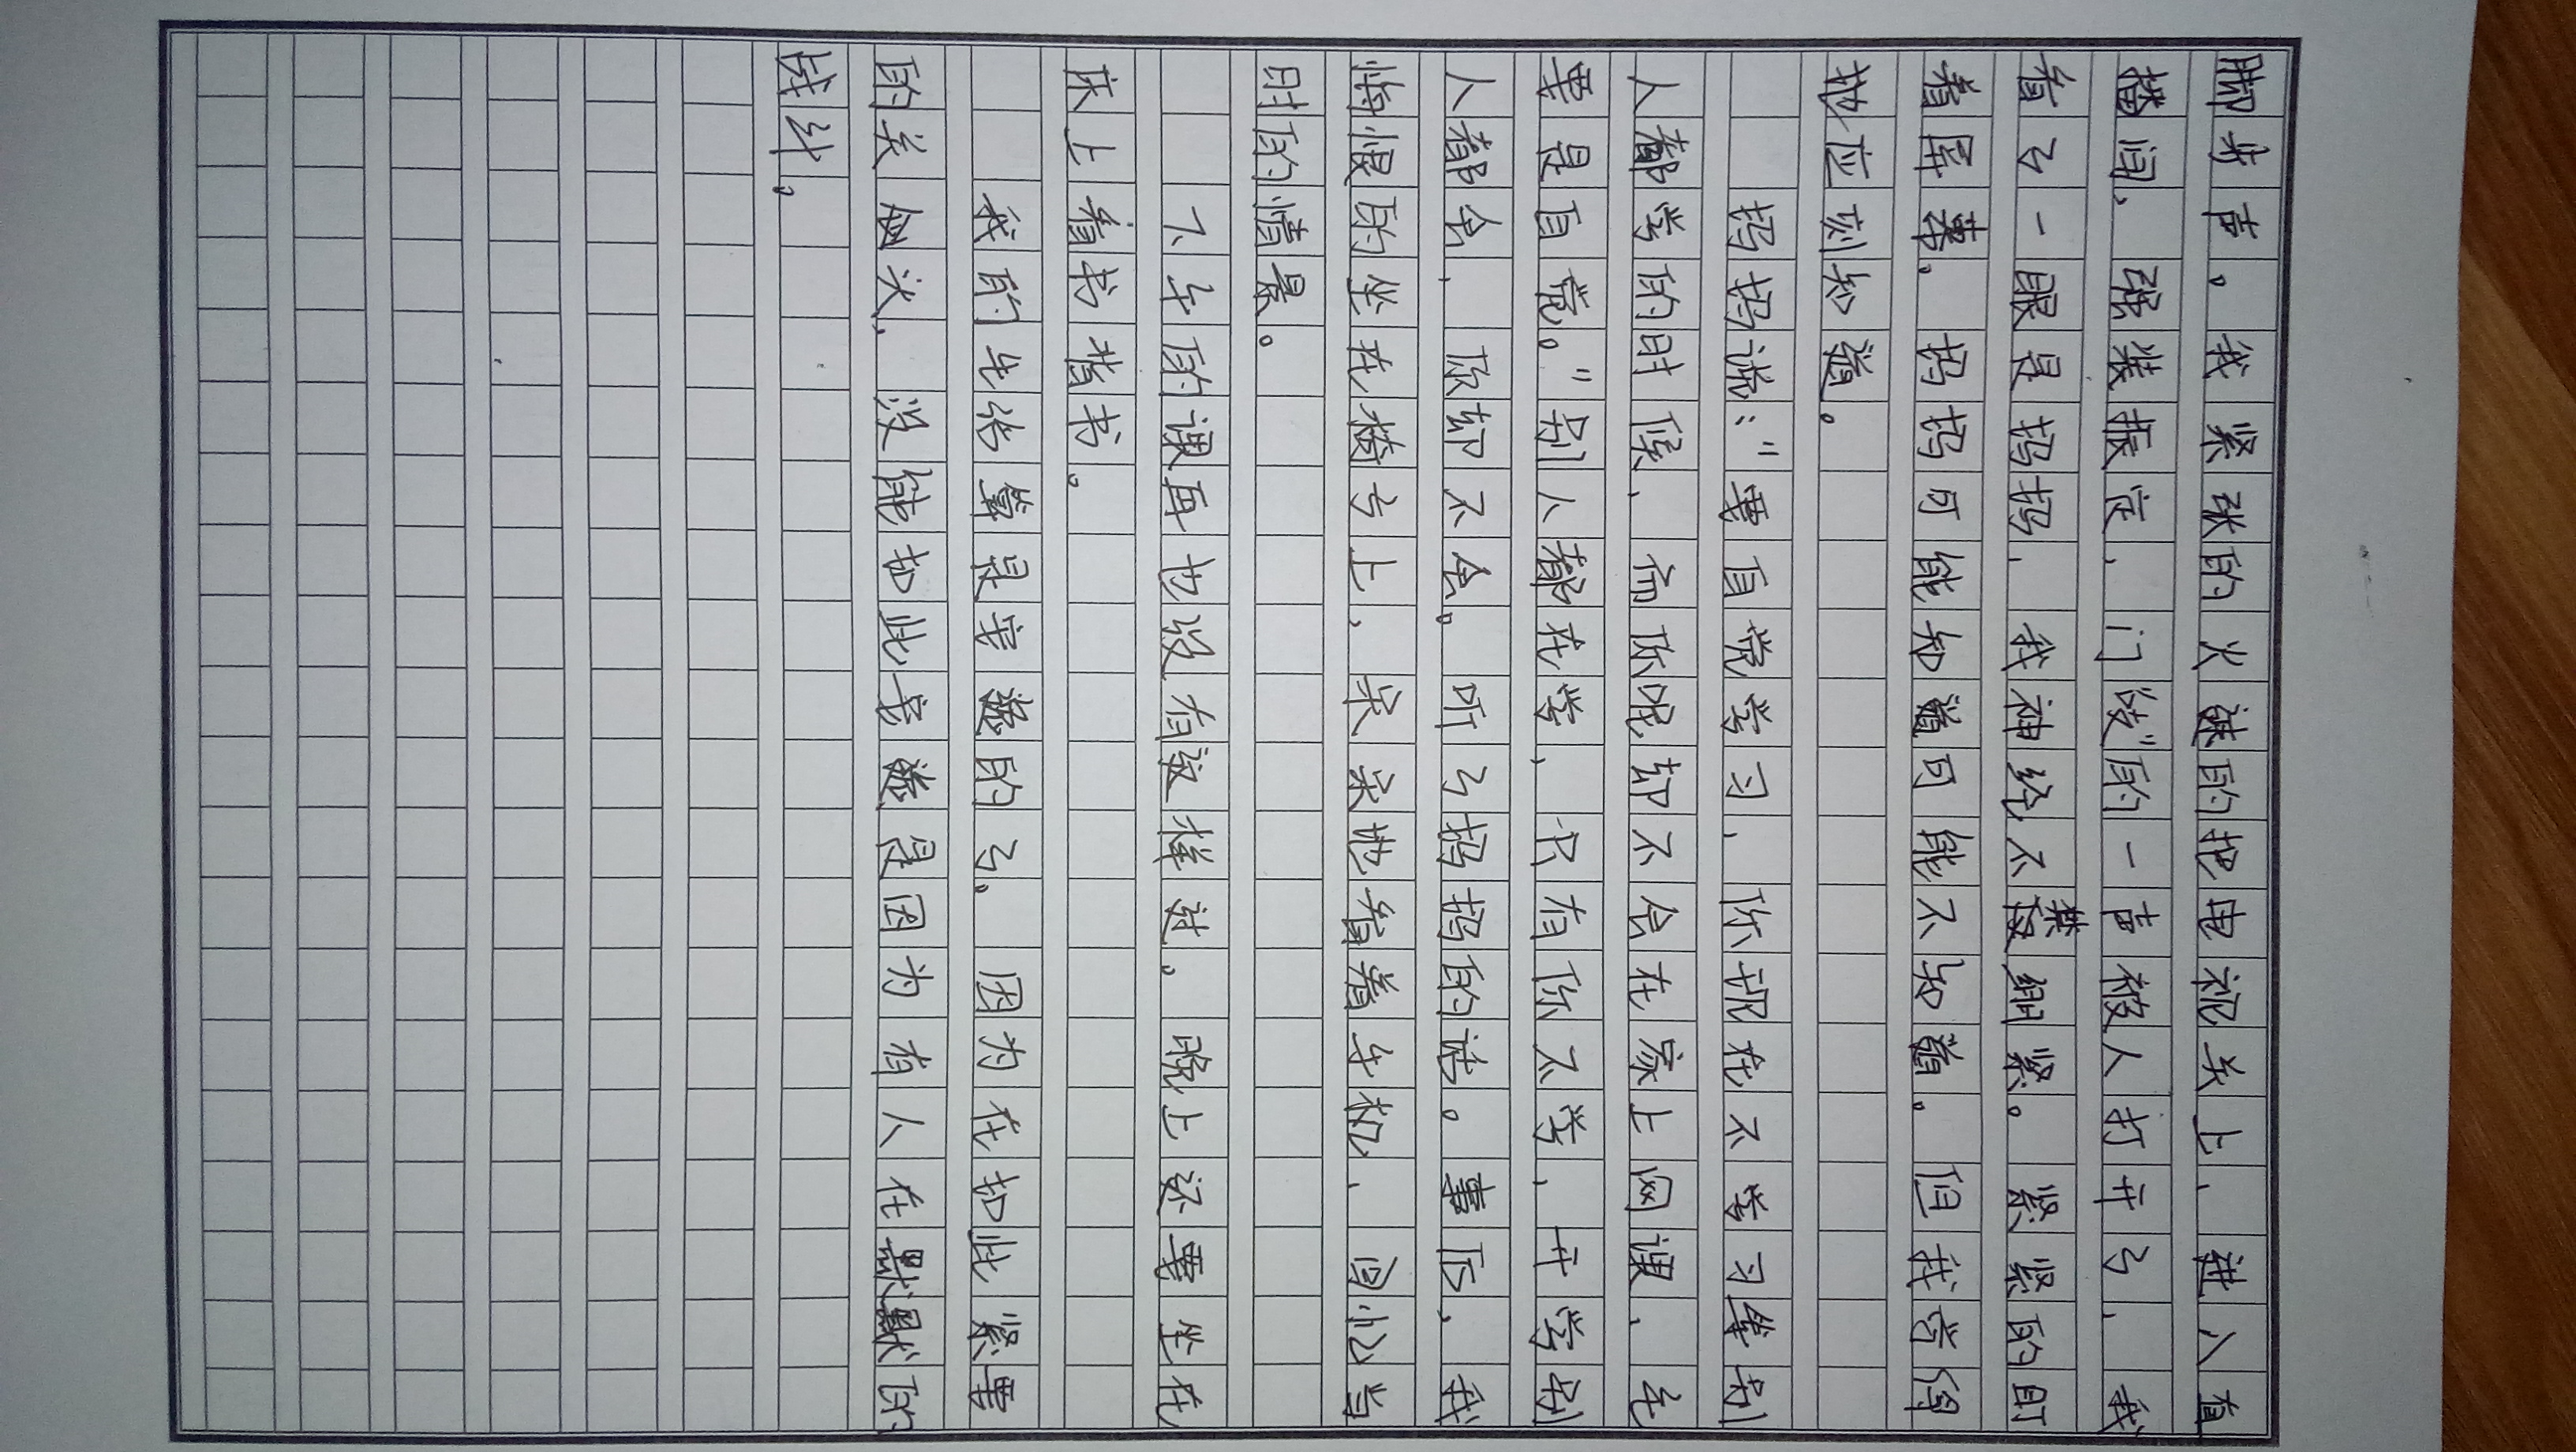 脚步声。我紧张的火速的把电视关上，进入直
播间，强装振定，门“吱”的一声被人打开了，我
看了一眼是妈妈，我神经不禁绷紧。紧紧的盯
着屏幕。妈妈可能知道可能不知道。但我觉得
她应刻知道。
妈妈说：“要自觉学习，你现在不学习等别
人都学的时候，而你呢却不会在家上网课，先
要是自觉。”别人都在学，只有你不学，开学别
人都会，你却不会。听了妈妈的话。事后，我
悔恨的坐在椅子上，呆呆地看着手机，回忆当
时的情景。
下午的课再也没有这样过。晚上还要坐在
床上看书背书。
我的生活算是安逸的了。因为在如此紧要
的关金头，没能如此安逸是因为有人在默默的
战斗。